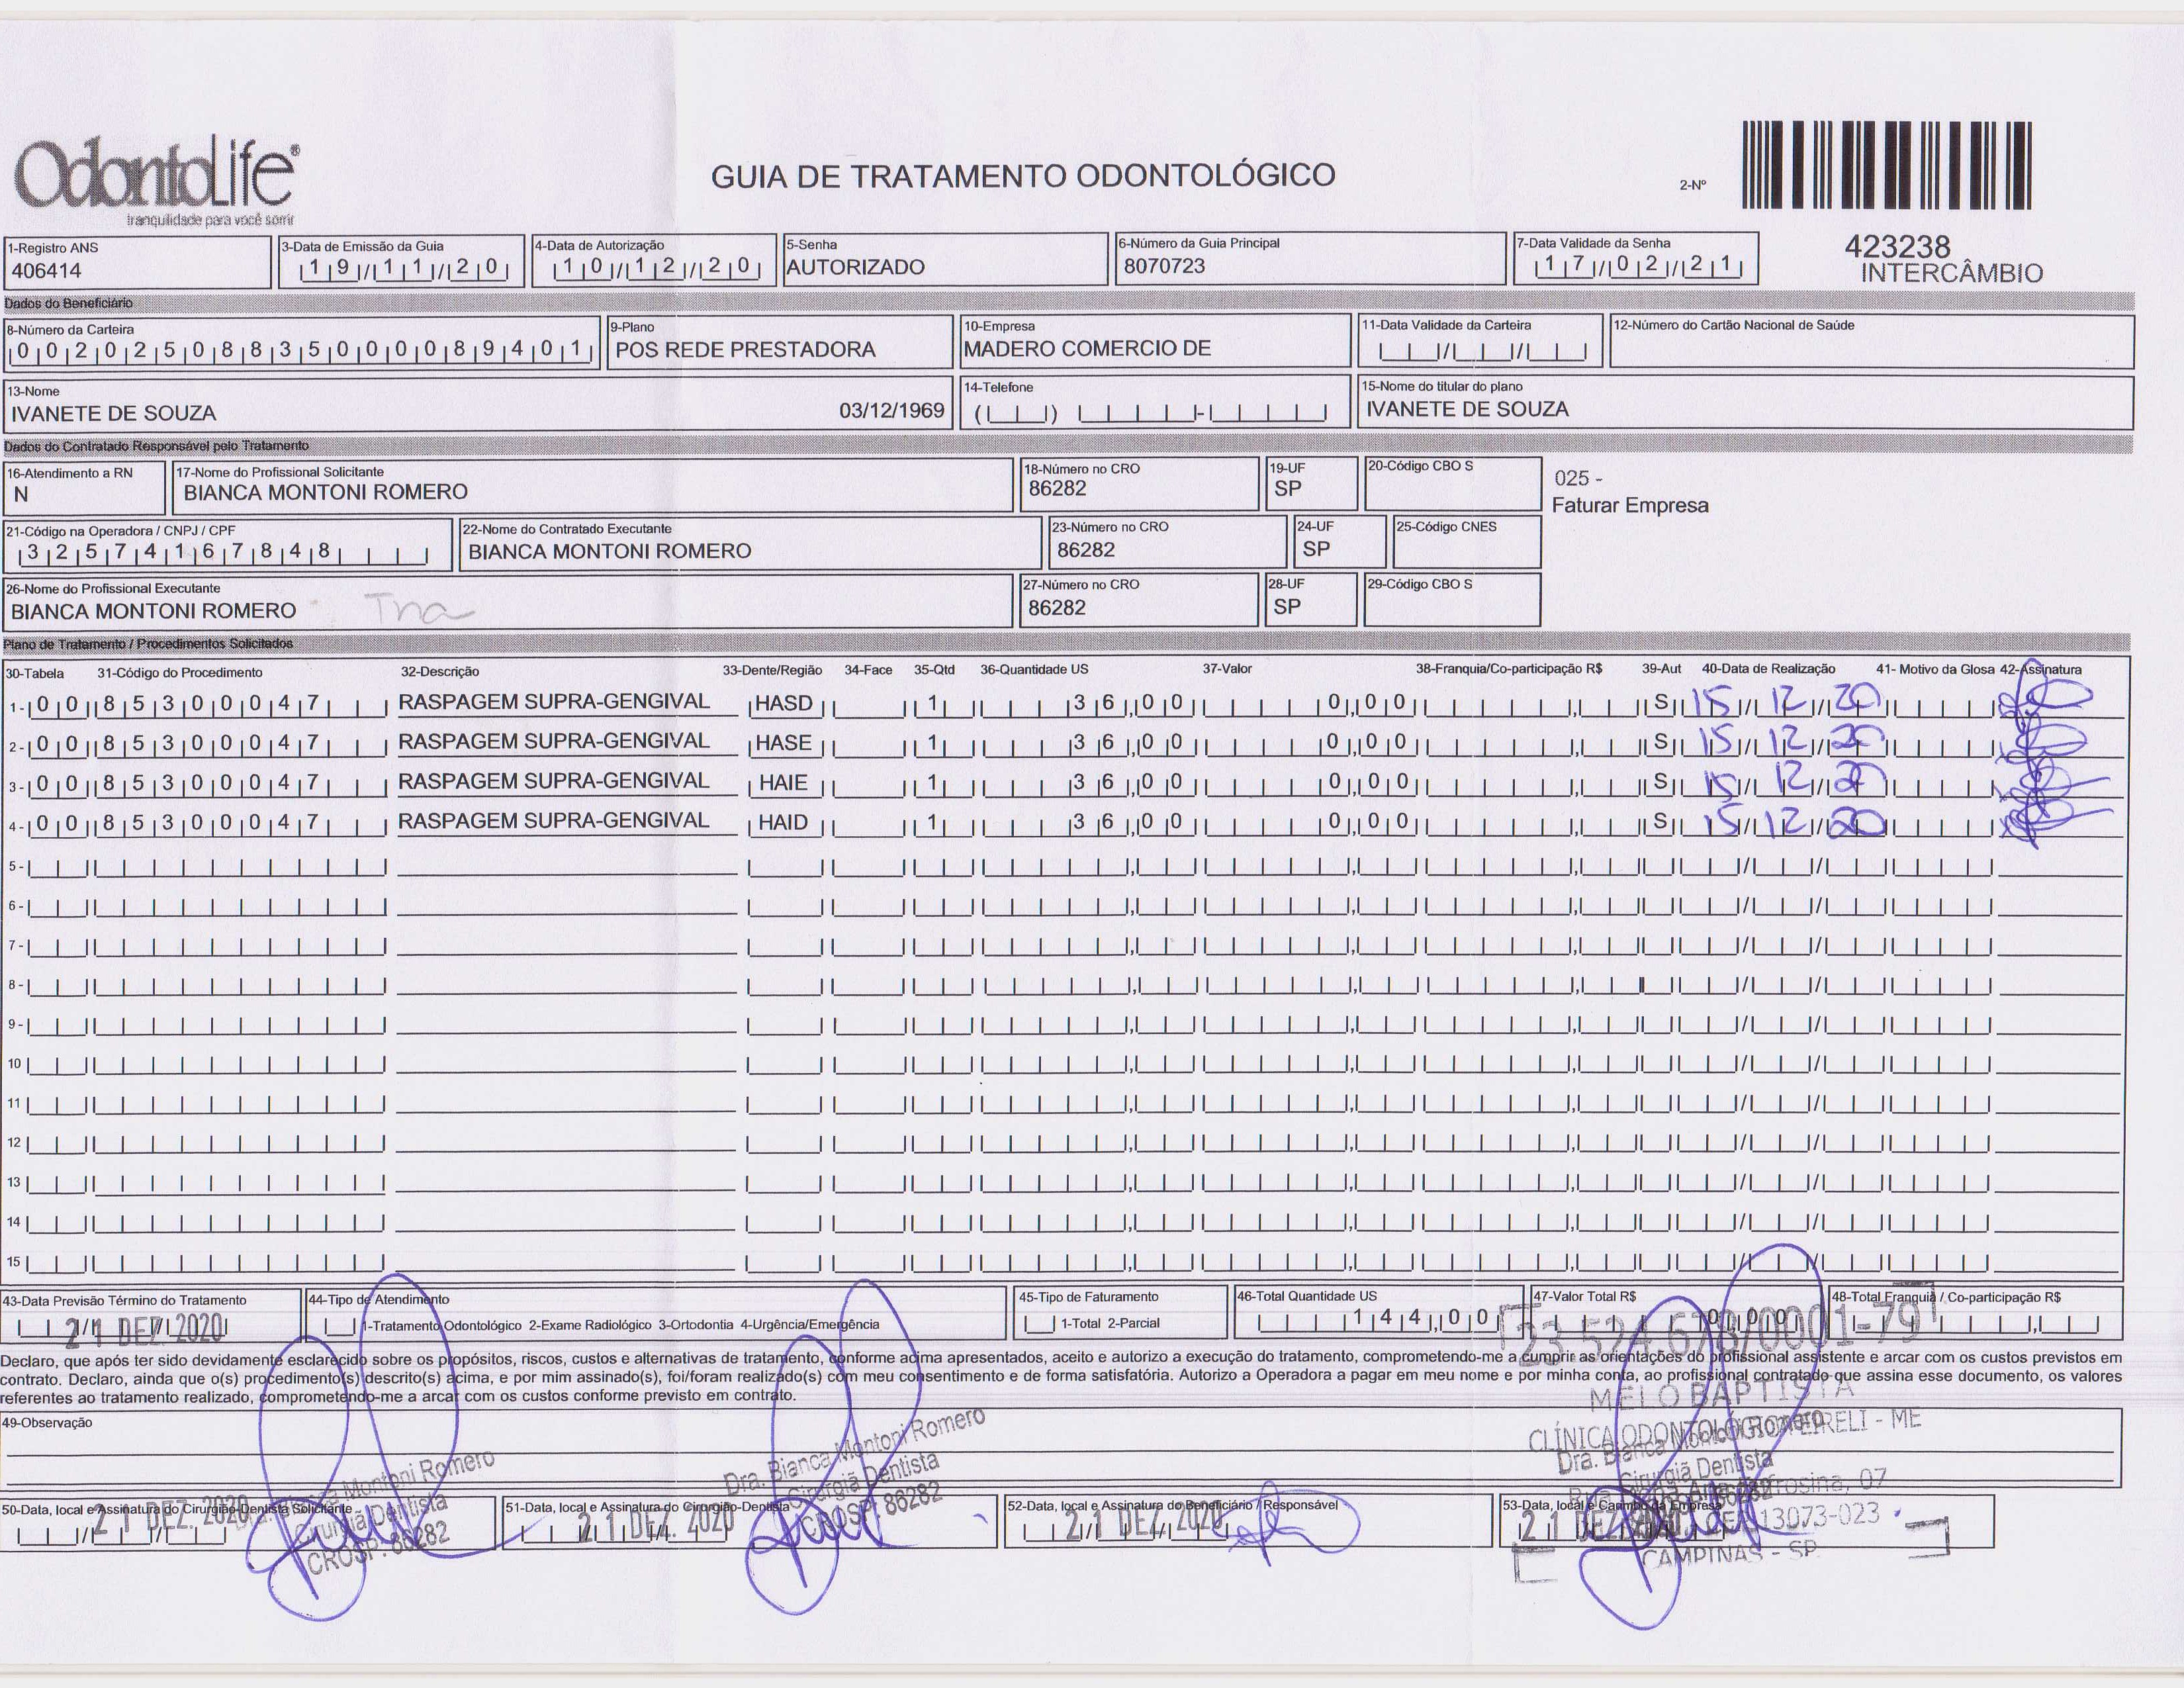 OdontoLife®
tranquilidade para você sorrir
GUIA DE TRATAMENTO ODONTOLÓGICO
2-Nº
423238
INTERCÂMBIO
1-Registro ANS
406414
3-Data de Emissão da Guia
19/11/20
4-Data de Autorização
10/12/20
5-Senha
AUTORIZADO
6-Número da Guia Principal
8070723
7-Data Validade da Senha
17/02/21
Dados do Beneficiário
8-Número da Carteira
00202508835000089401
9-Plano
POS REDE PRESTADORA
10-Empresa
MADERO COMERCIO DE
11-Data Validade da Carteira
12-Número do Cartão Nacional de Saúde
13-Nome
IVANETE DE SOUZA 03/12/1969
14-Telefone
15-Nome do titular do plano
IVANETE DE SOUZA
Dados do Contratado Responsável pelo Tratamento
16-Atendimento a RN
N
17-Nome do Profissional Solicitante
BIANCA MONTONI ROMERO
18-Número no CRO
86282
19-UF
SP
20-Código CBO S
025 -
Faturar Empresa
21-Código na Operadora / CNPJ / CPF
32574167848
22-Nome do Contratado Executante
BIANCA MONTONI ROMERO
23-Número no CRO
86282
24-UF
SP
25-Código CNES
26-Nome do Profissional Executante
BIANCA MONTONI ROMERO
27-Número no CRO
86282
28-UF
SP
29-Código CBO S
Plano de Tratamento / Procedimentos Solicitados
30-Tabela 31-Código do Procedimento 32-Descrição 33-Dente/Região 34-Face 35-Qtd 36-Quantidade US 37-Valor 38-Franquia/Co-participação R$ 39-Aut 40-Data de Realização 41- Motivo da Glosa 42-Assinatura
1- 00 85300047 RASPAGEM SUPRA-GENGIVAL HASD 1 36,00 0,00 S 15/12/20
2- 00 85300047 RASPAGEM SUPRA-GENGIVAL HASE 1 36,00 0,00 S 15/12/20
3- 00 85300047 RASPAGEM SUPRA-GENGIVAL HAIE 1 36,00 0,00 S 15/12/20
4- 00 85300047 RASPAGEM SUPRA-GENGIVAL HAID 1 36,00 0,00 S 15/12/20
5-
6-
7-
8-
9-
10
11
12
13
14
15
43-Data Previsão Término do Tratamento
21 DEZ 2020
44-Tipo de Atendimento
1-Tratamento Odontológico 2-Exame Radiológico 3-Ortodontia 4-Urgência/Emergência
45-Tipo de Faturamento
1-Total 2-Parcial
46-Total Quantidade US
144,00
47-Valor Total R$
0,00
48-Total Franquia / Co-participação R$
23.524.678/0001-79
Declaro, que após ter sido devidamente esclarecido sobre os propósitos, riscos, custos e alternativas de tratamento, conforme acima apresentados, aceito e autorizo a execução do tratamento, comprometendo-me a cumprir as orientações do profissional assistente e arcar com os custos previstos em
contrato. Declaro, ainda que o(s) procedimento(s) descrito(s) acima, e por mim assinado(s), foi/foram realizado(s) com meu consentimento e de forma satisfatória. Autorizo a Operadora a pagar em meu nome e por minha conta, ao profissional contratado que assina esse documento, os valores
referentes ao tratamento realizado, comprometendo-me a arcar com os custos conforme previsto em contrato.
MELO BAPTISTA
CLÍNICA ODONTOLÓGICA EIRELI - ME
49-Observação
Montoni Romero
Cirurgiã Dentista
CROSP: 86282
Dra. Bianca Montoni Romero
Cirurgiã Dentista
CROSP: 86282
Dra. Bianca Romero
Cirurgiã Dentista
86282
50-Data, local e Assinatura do Cirurgião-Dentista Solicitante
21 DEZ. 2020
51-Data, local e Assinatura do Cirurgião-Dentista
21 DEZ. 2020
52-Data, local e Assinatura do Beneficiário / Responsável
21 DEZ 2020
53-Data, local e Carimbo da Empresa
21 DEZ
07
CEP 13073-023
CAMPINAS - SP